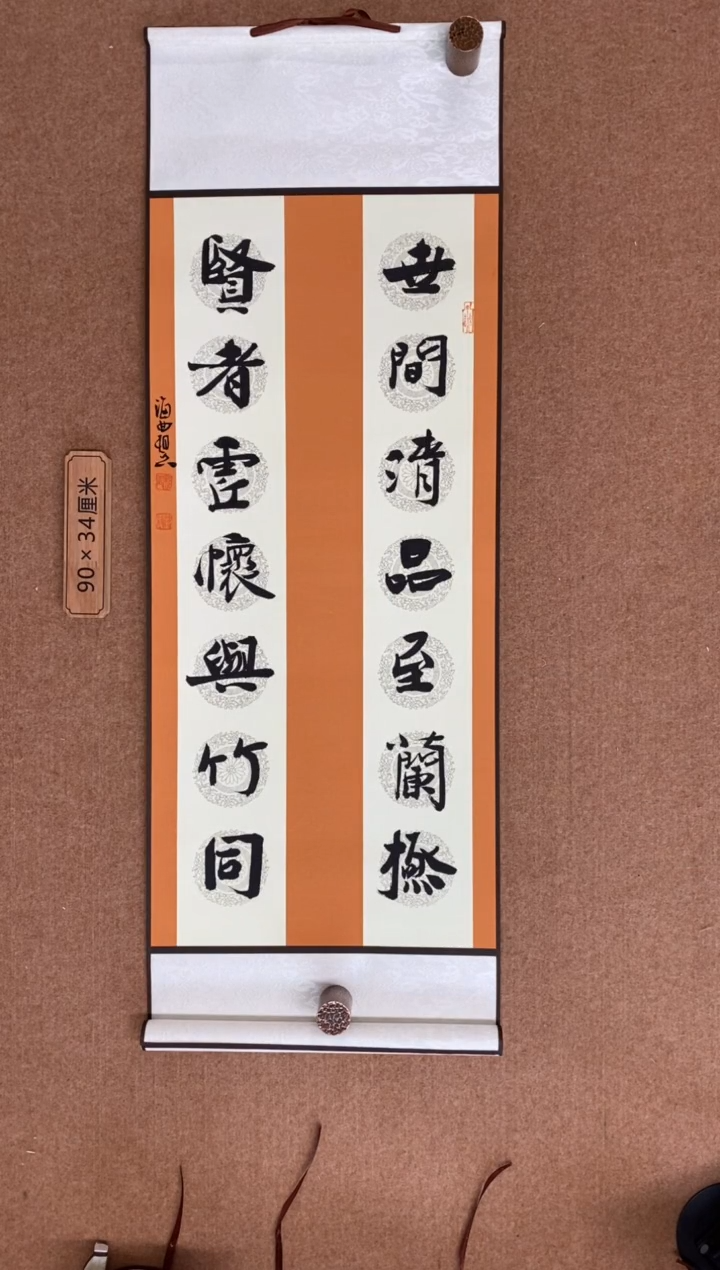 世間清品至蘭極
賢者虛懷與竹同
90×34厘米